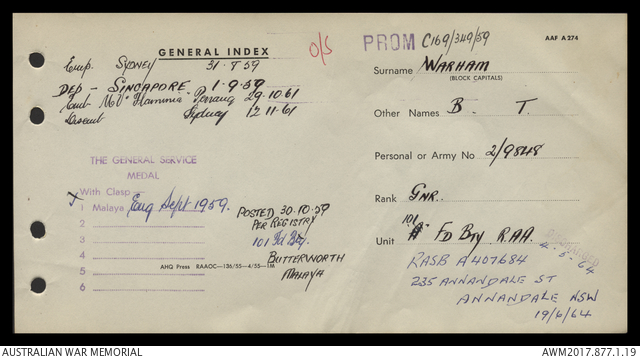 GENERAL INDEX
O/S
PROM C169/349/59
AAF A 274
Emp. SYDNEY 31.8.59
DEP - SINGAPORE 1.9.59
Emb MV "Flaminia" Penang 29.10.61
Disemb Sydney 12.11.61
Surname WARHAM
(BLOCK CAPITALS)
Other Names B. T.
Personal or Army No 2/9848
Rank GNR.
101
Unit "A" FD BTY R.A.A.
4.5.64
RASB A407684
235 ANNANDALE ST
ANNANDALE NSW
19/6/64
THE GENERAL SERVICE
MEDAL
With Clasp —
1 Malaya Eng Sept 1959.
2
3
4
5
6
POSTED 30.10.59
PER REGISTRY
101 Fd Bty.
BUTTERWORTH
MALAYA
AHQ Press RAAOC—136/55—4/55—1M
AUSTRALIAN WAR MEMORIAL
AWM2017.877.1.19